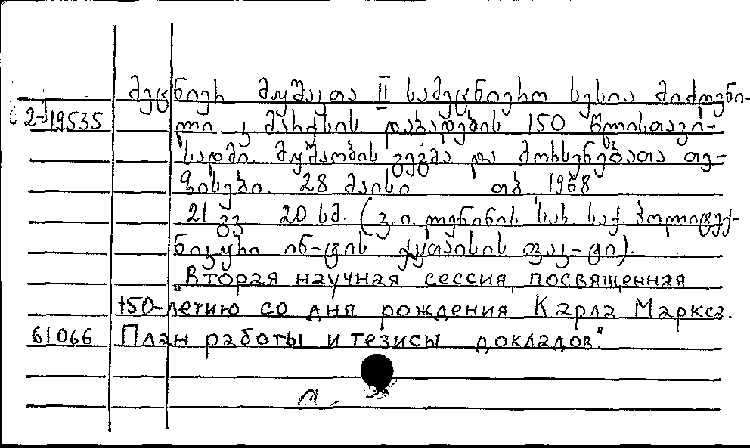 მეცნიერ მუშაკთა II სამეცნიერო სესია მიძღვნი-
2-19535 ლი კ. მარქსის დაბადების 150 წლისთავი-
სადმი. მუშაობის გეგმა და მოხსენებათა თე-
ზისები. 28 მაისი თბ. 1968
21 გვ. 20 სმ. (ვ. ი. ლენინის სახ. საქ. პოლიტექ-
ნიკური ინ-ტის ქუთაისის ფაკ-ტი).
"Вторая научная сессия, посвященная
150-летию со дня рождения Карла Маркса.
61066 План работы и тезисы докладов."